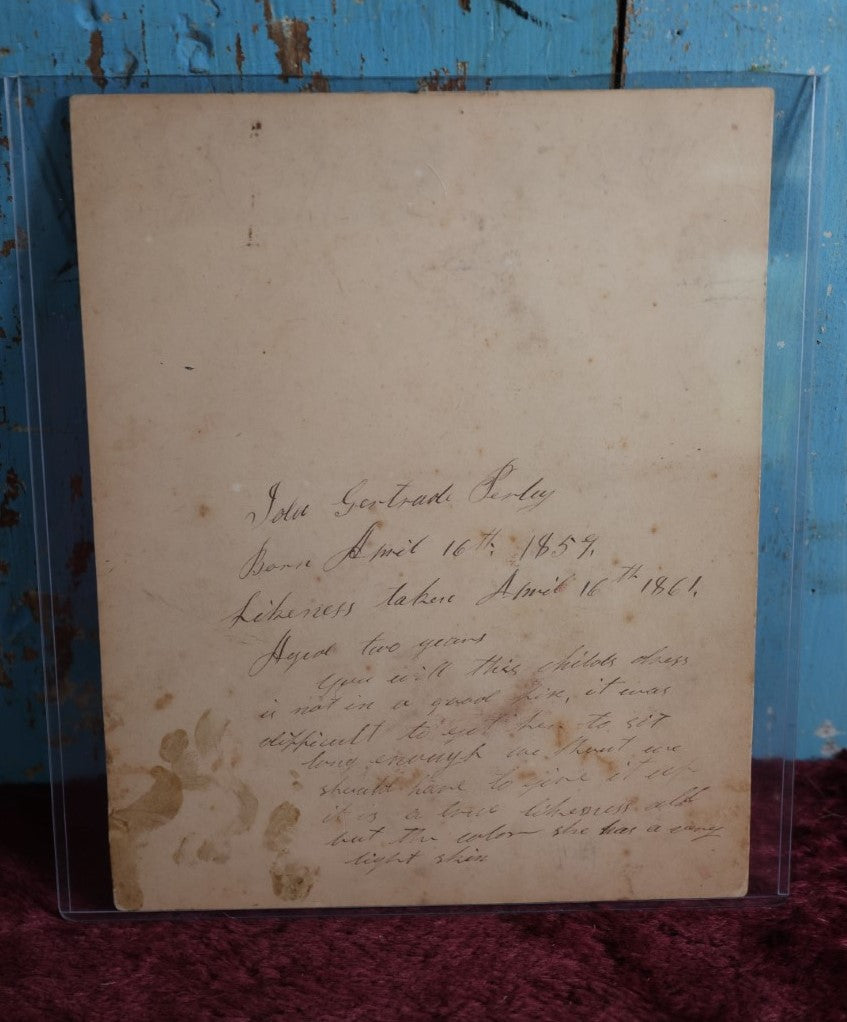 Ida Gertrude Perley
Born April 16th. 1859.
Likeness taken April 16th 1861.
Aged two years
You will this childs dress
is not in a good fix, it was
difficult to get her to sit
long enough we thout we
should have to give it up
it is a true likeness all
but the color she has a very
light skin